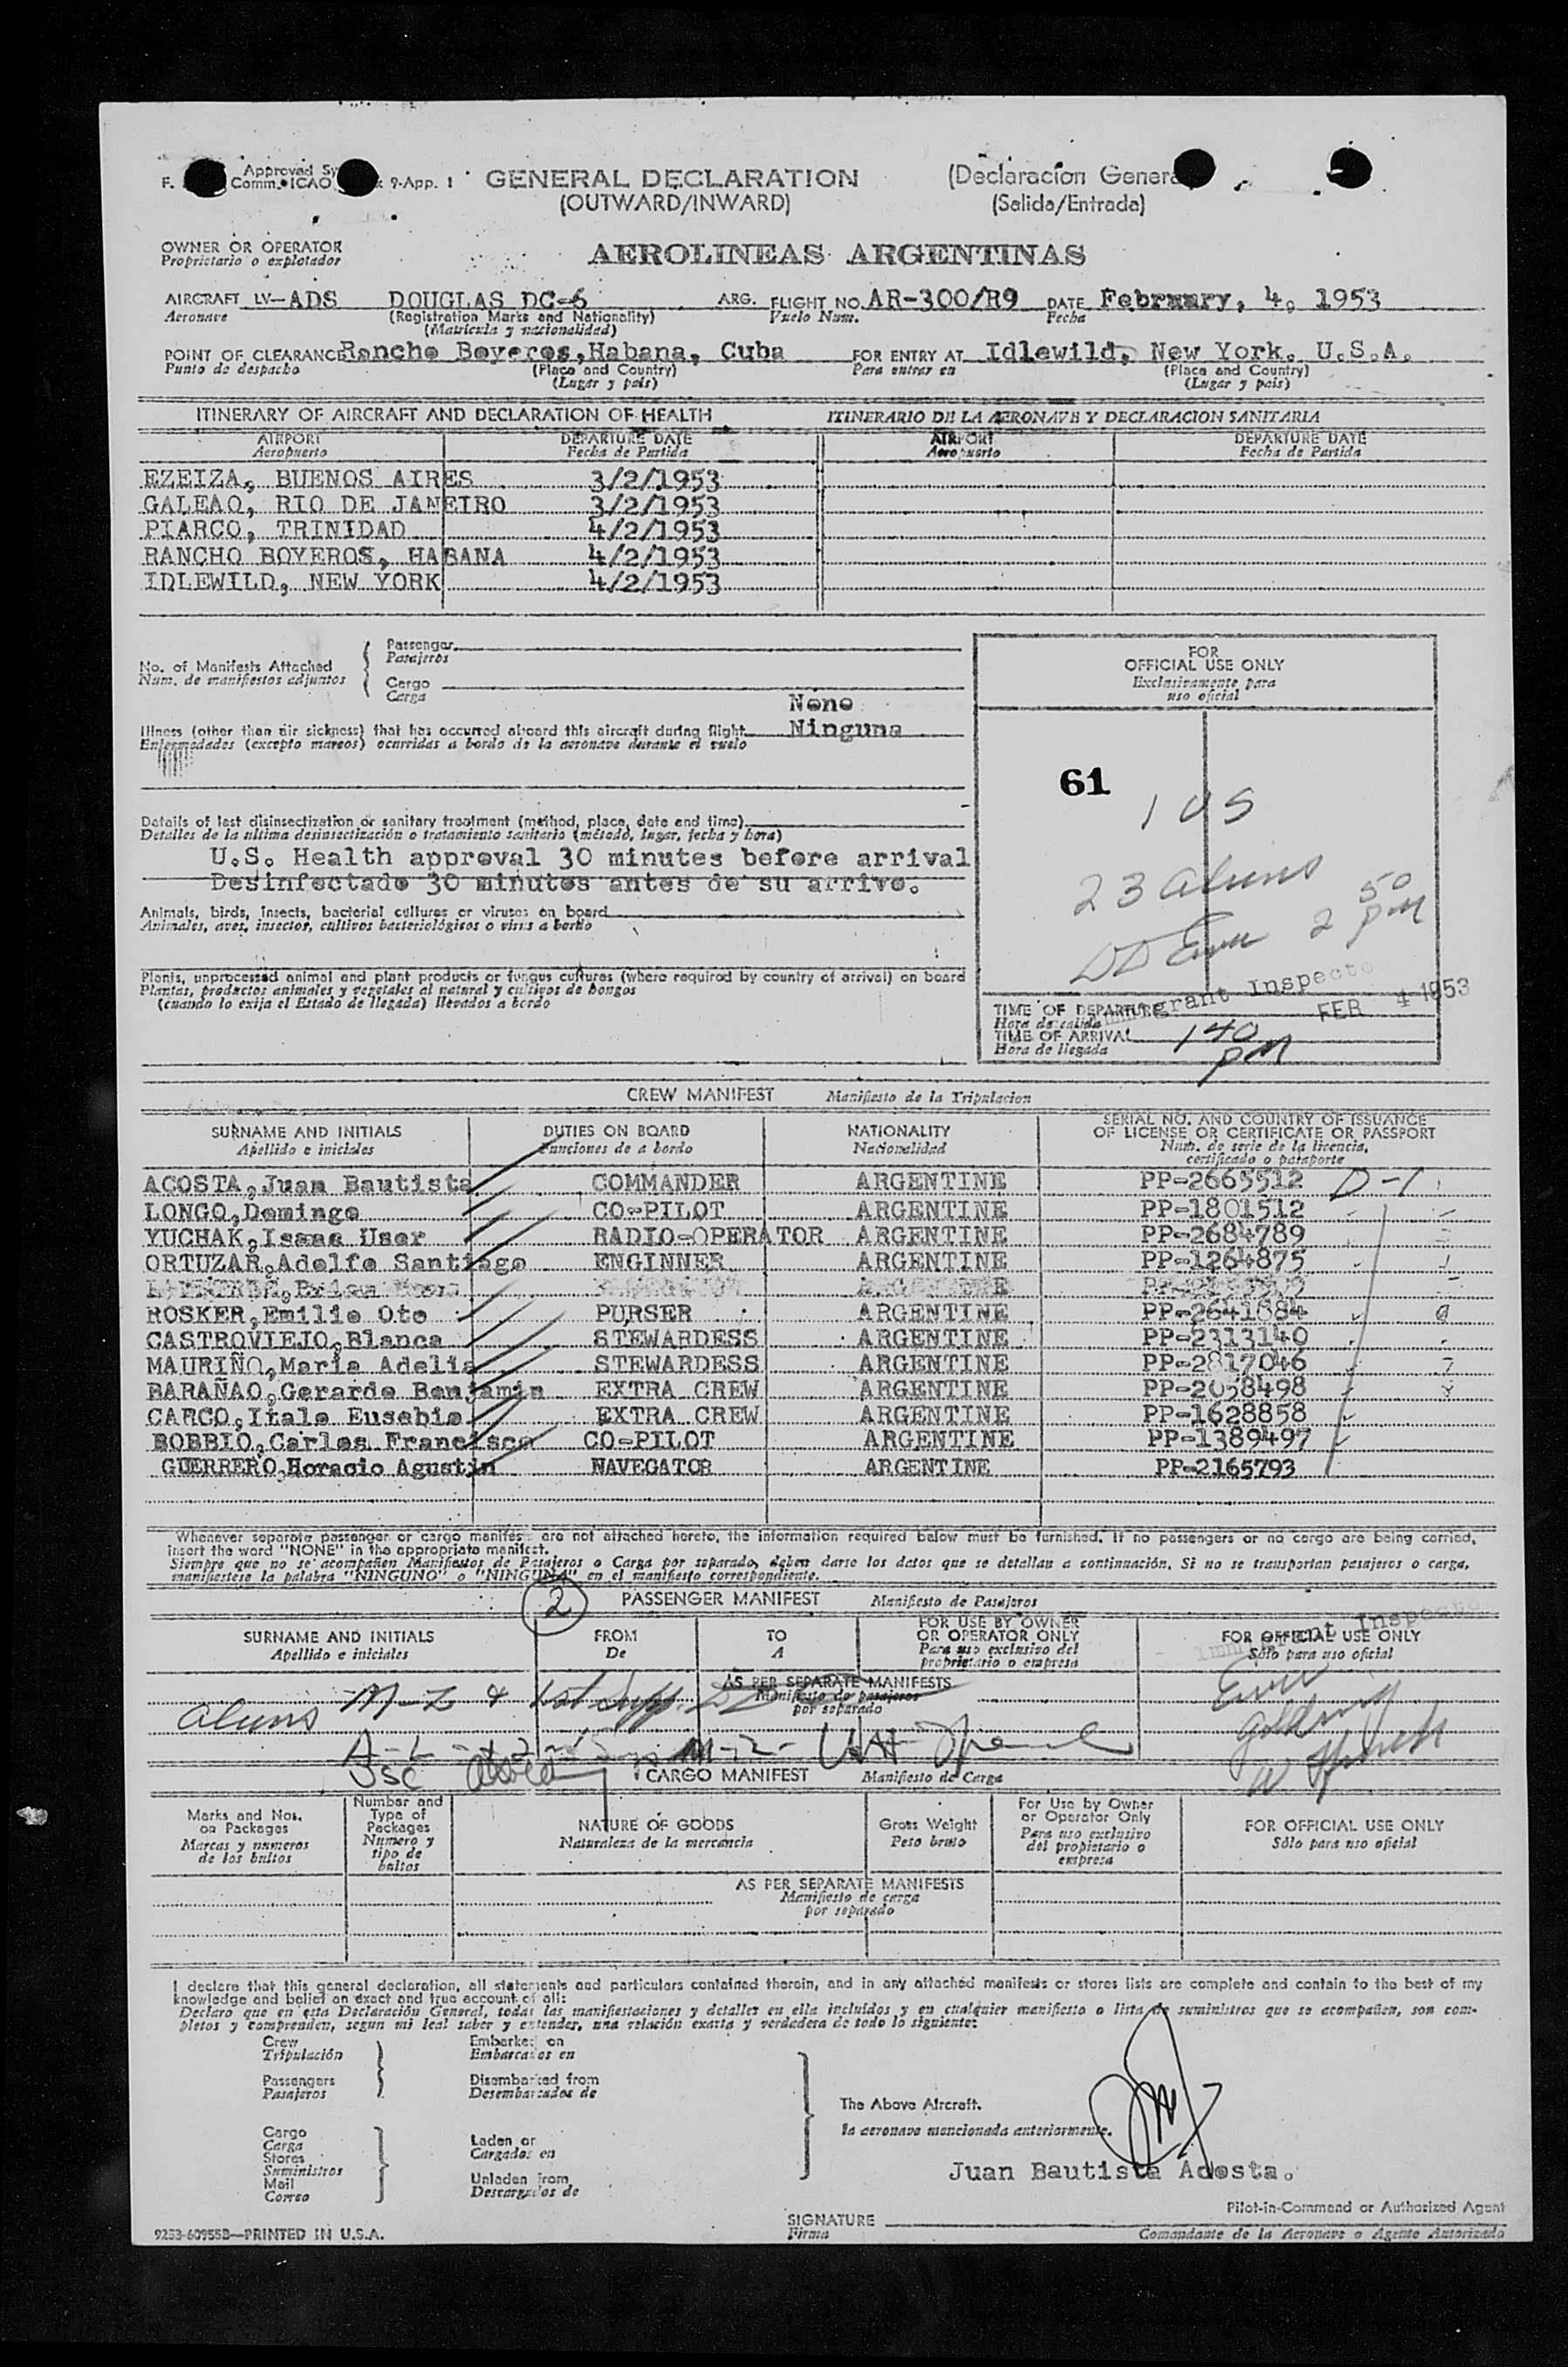 F. Approved Sy
Comm. ICAO 9-App. 1
GENERAL DECLARATION (Declaracion Genera
(OUTWARD/INWARD) (Salida/Entrada)
OWNER OR OPERATOR
Proprietario o explotador
AEROLINEAS ARGENTINAS
AIRCRAFT LV-ADS DOUGLAS DC-6 ARG. FLIGHT NO. AR-300/R9 DATE February, 4, 1953
Aeronave (Registration Marks and Nationality) Vuelo Num. Fecha
(Matricula y nacionalidad)
POINT OF CLEARANCE Rancho Boyeros, Habana, Cuba FOR ENTRY AT Idlewild, New York. U.S.A.
Punto de despacho (Place and Country) Para entrar en (Place and Country)
(Lugar y pais) (Lugar y pais)
ITINERARY OF AIRCRAFT AND DECLARATION OF HEALTH ITINERARIO DE LA AERONAVE Y DECLARACION SANITARIA
AIRPORT DEPARTURE DATE AIRPORT DEPARTURE DATE
Aeropuerto Fecha de Partida Aeropuerto Fecha de Partida
EZEIZA, BUENOS AIRES 3/2/1953
GALEAO, RIO DE JANEIRO 3/2/1953
PIARCO, TRINIDAD 4/2/1953
RANCHO BOYEROS, HABANA 4/2/1953
IDLEWILD, NEW YORK 4/2/1953
No. of Manifests Attached
Num. de manifiestos adjuntos
Passenger
Pasajeros
Cargo
Carga
None
Illness (other than air sickness) that has occurred aboard this aircraft during flight Ninguna
Enfermedades (excepto mareos) ocurridas a bordo de la aeronave durante el vuelo
Details of last disinsectization or sanitary treatment (method, place, date and time)
Detalles de la ultima desinsectización o tratamiento sanitario (método, lugar, fecha y hora)
U.S. Health approval 30 minutes before arrival
Desinfectado 30 minutos antes de su arrivo.
Animals, birds, insects, bacterial cultures or viruses on board
Animales, aves, insectos, cultivos bacteriológicos o virus a bordo
Plants, unprocessed animal and plant products or fungus cultures (where required by country of arrival) on board
Plantas, productos animales y vegetales al natural y cultivos de hongos
(cuando lo exija el Estado de llegada) llevados a bordo
FOR
OFFICIAL USE ONLY
Exclusivamente para
uso oficial
61
1 US
23 aliens
2 50 PM
Immigrant Inspecto
FEB 4 1953
TIME OF DEPARTURE
Hora de salida
TIME OF ARRIVAL 140 PM
Hora de llegada
CREW MANIFEST Manifiesto de la Tripulacion
SURNAME AND INITIALS DUTIES ON BOARD NATIONALITY SERIAL NO. AND COUNTRY OF ISSUANCE
OF LICENSE OR CERTIFICATE OR PASSPORT
Apellido e iniciales Funciones de a bordo Nacionalidad Num. de serie de la licencia,
certificado o pasaporte
ACOSTA, Juan Bautista COMMANDER ARGENTINE PP-2665512 D-1
LONGO, Domingo CO-PILOT ARGENTINE PP-1801512
YUCHAK, Isaac User RADIO-OPERATOR ARGENTINE PP-2684789
ORTUZAR, Adolfo Santiago ENGINNER ARGENTINE PP-1264875
ROSKER, Emilio Oto PURSER ARGENTINE PP-2641884
CASTROVIEJO, Blanca STEWARDESS ARGENTINE PP-2313140
MAURIÑO, Maria Adelia STEWARDESS ARGENTINE PP-2817046
BARAÑAO, Gerardo Benjamin EXTRA CREW ARGENTINE PP-2058498
CARCO, Italo Eusebio EXTRA CREW ARGENTINE PP-1628858
BOBBIO, Carlos Francisco CO-PILOT ARGENTINE PP-1389497
GUERRERO, Horacio Agustin NAVEGATOR ARGENTINE PP-2165793
Whenever separate passenger or cargo manifests are not attached hereto, the information required below must be furnished. If no passengers or no cargo are being carried,
insert the word "NONE" in the appropriate manifest.
Siempre que no se acompañen Manifiestos de Pasajeros o Carga por separado, deben darse los datos que se detallan a continuación. Si no se transportan pasajeros o carga,
manifiestese la palabra "NINGUNO" o "NINGUNA" en el manifiesto correspondiente.
2
PASSENGER MANIFEST Manifiesto de Pasajeros
SURNAME AND INITIALS FROM TO FOR USE BY OWNER
OR OPERATOR ONLY FOR OFFICIAL USE ONLY
Apellido e iniciales De A Para uso exclusivo del
proprietario o empresa Sólo para uso oficial
Immigrant Inspecto
AS PER SEPARATE MANIFESTS
Manifiesto de pasajeros
por separado
aliens M-Z & 1st Supp.
A-L
USC
CARGO MANIFEST Manifiesto de Carga
Marks and Nos.
on Packages
Marcas y numeros
de los bultos
Number and
Type of
Packages
Numero y
tipo de
bultos
NATURE OF GOODS
Naturaleza de la mercancia
Gross Weight
Peso bruto
For Use by Owner
or Operator Only
Para uso exclusivo
del propietario o
empresa
FOR OFFICIAL USE ONLY
Sólo para uso oficial
AS PER SEPARATE MANIFESTS
Manifiesto de carga
por separado
I declare that this general declaration, all statements and particulars contained therein, and in any attached manifests or stores lists are complete and contain to the best of my
knowledge and belief an exact and true account of all:
Declaro que en esta Declaración General, todas las manifestaciones y detalles en ella incluidos y en cualquier manifiesto o lista de suministros que se acompañen, son com-
pletos y comprenden, segun mi leal saber y entender, una relación exacta y verdadera de todo lo siguiente:
Crew
Tripulación
Passengers
Pasajeros
Embarked on
Embarcados en
Disembarked from
Desembarcados de
Cargo
Carga
Stores
Suministros
Mail
Correo
Laden on
Cargados en
Unladen from
Descargados de
The Above Aircraft.
la aeronave mencionada anteriormente.
Juan Bautista Acosta.
Pilot-in-Command or Authorized Agent
SIGNATURE
Firma Comandante de la Aeronave o Agente Autorizado
9253-60955B—PRINTED IN U.S.A.